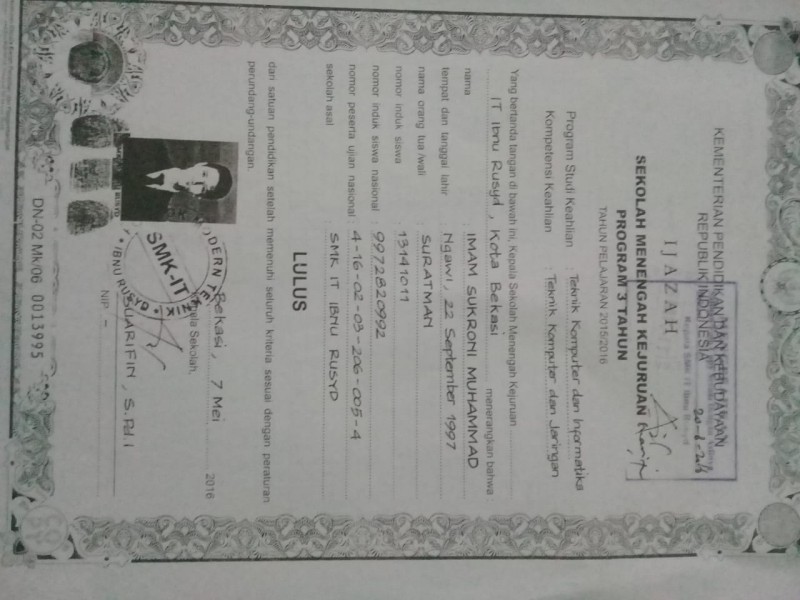 KEMENTERIAN PENDIDIKAN DAN KEBUDAYAAN
REPUBLIK INDONESIA
IJAZAH
SEKOLAH MENENGAH KEJURUAN
PROGRAM 3 TAHUN
TAHUN PELAJARAN 2015/2016
Program Studi Keahlian : Teknik Komputer dan Informatika
Kompetensi Keahlian : Teknik Komputer dan Jaringan
Yang bertanda tangan di bawah ini, Kepala Sekolah Menengah Kejuruan
IT Ibnu Rusyd, Kota Bekasi menerangkan bahwa
nama : IMAM SUKRONI MUHAMMAD
tempat dan tanggal lahir : Ngawi, 22 September 1997
nama orang tua/wali : SURATMAN
nomor induk siswa : 13141011
nomor induk siswa nasional : 9972820992
nomor peserta ujian nasional : 4-16-02-03-206-005-4
sekolah asal : SMK IT IBNU RUSYD
LULUS
dari satuan pendidikan setelah memenuhi seluruh kriteria sesuai dengan peraturan
perundang-undangan.
Bekasi, 7 Mei 2016
Kepala Sekolah,
SMK-IT
IBNU RUSYD
SUARIFIN, S.Pd.I
NIP -
DN-02 Mk/06 0013995